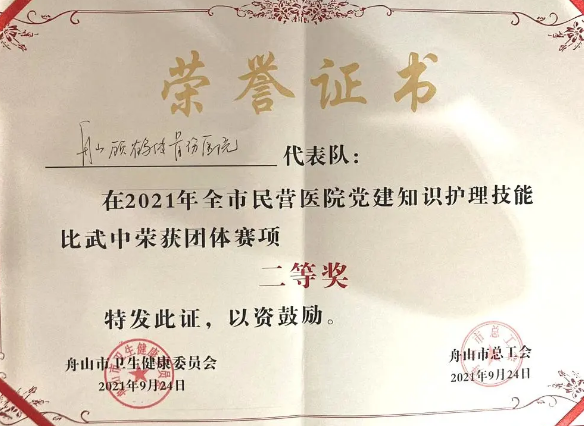 荣誉证书
舟山颐和骨伤医院 代表队：
在2021年全市民营医院党建知识护理技能
比武中荣获团体赛项
二等奖
特发此证，以资鼓励。
舟山市卫生健康委员会
2021年9月24日
舟山市总工会
2021年9月24日